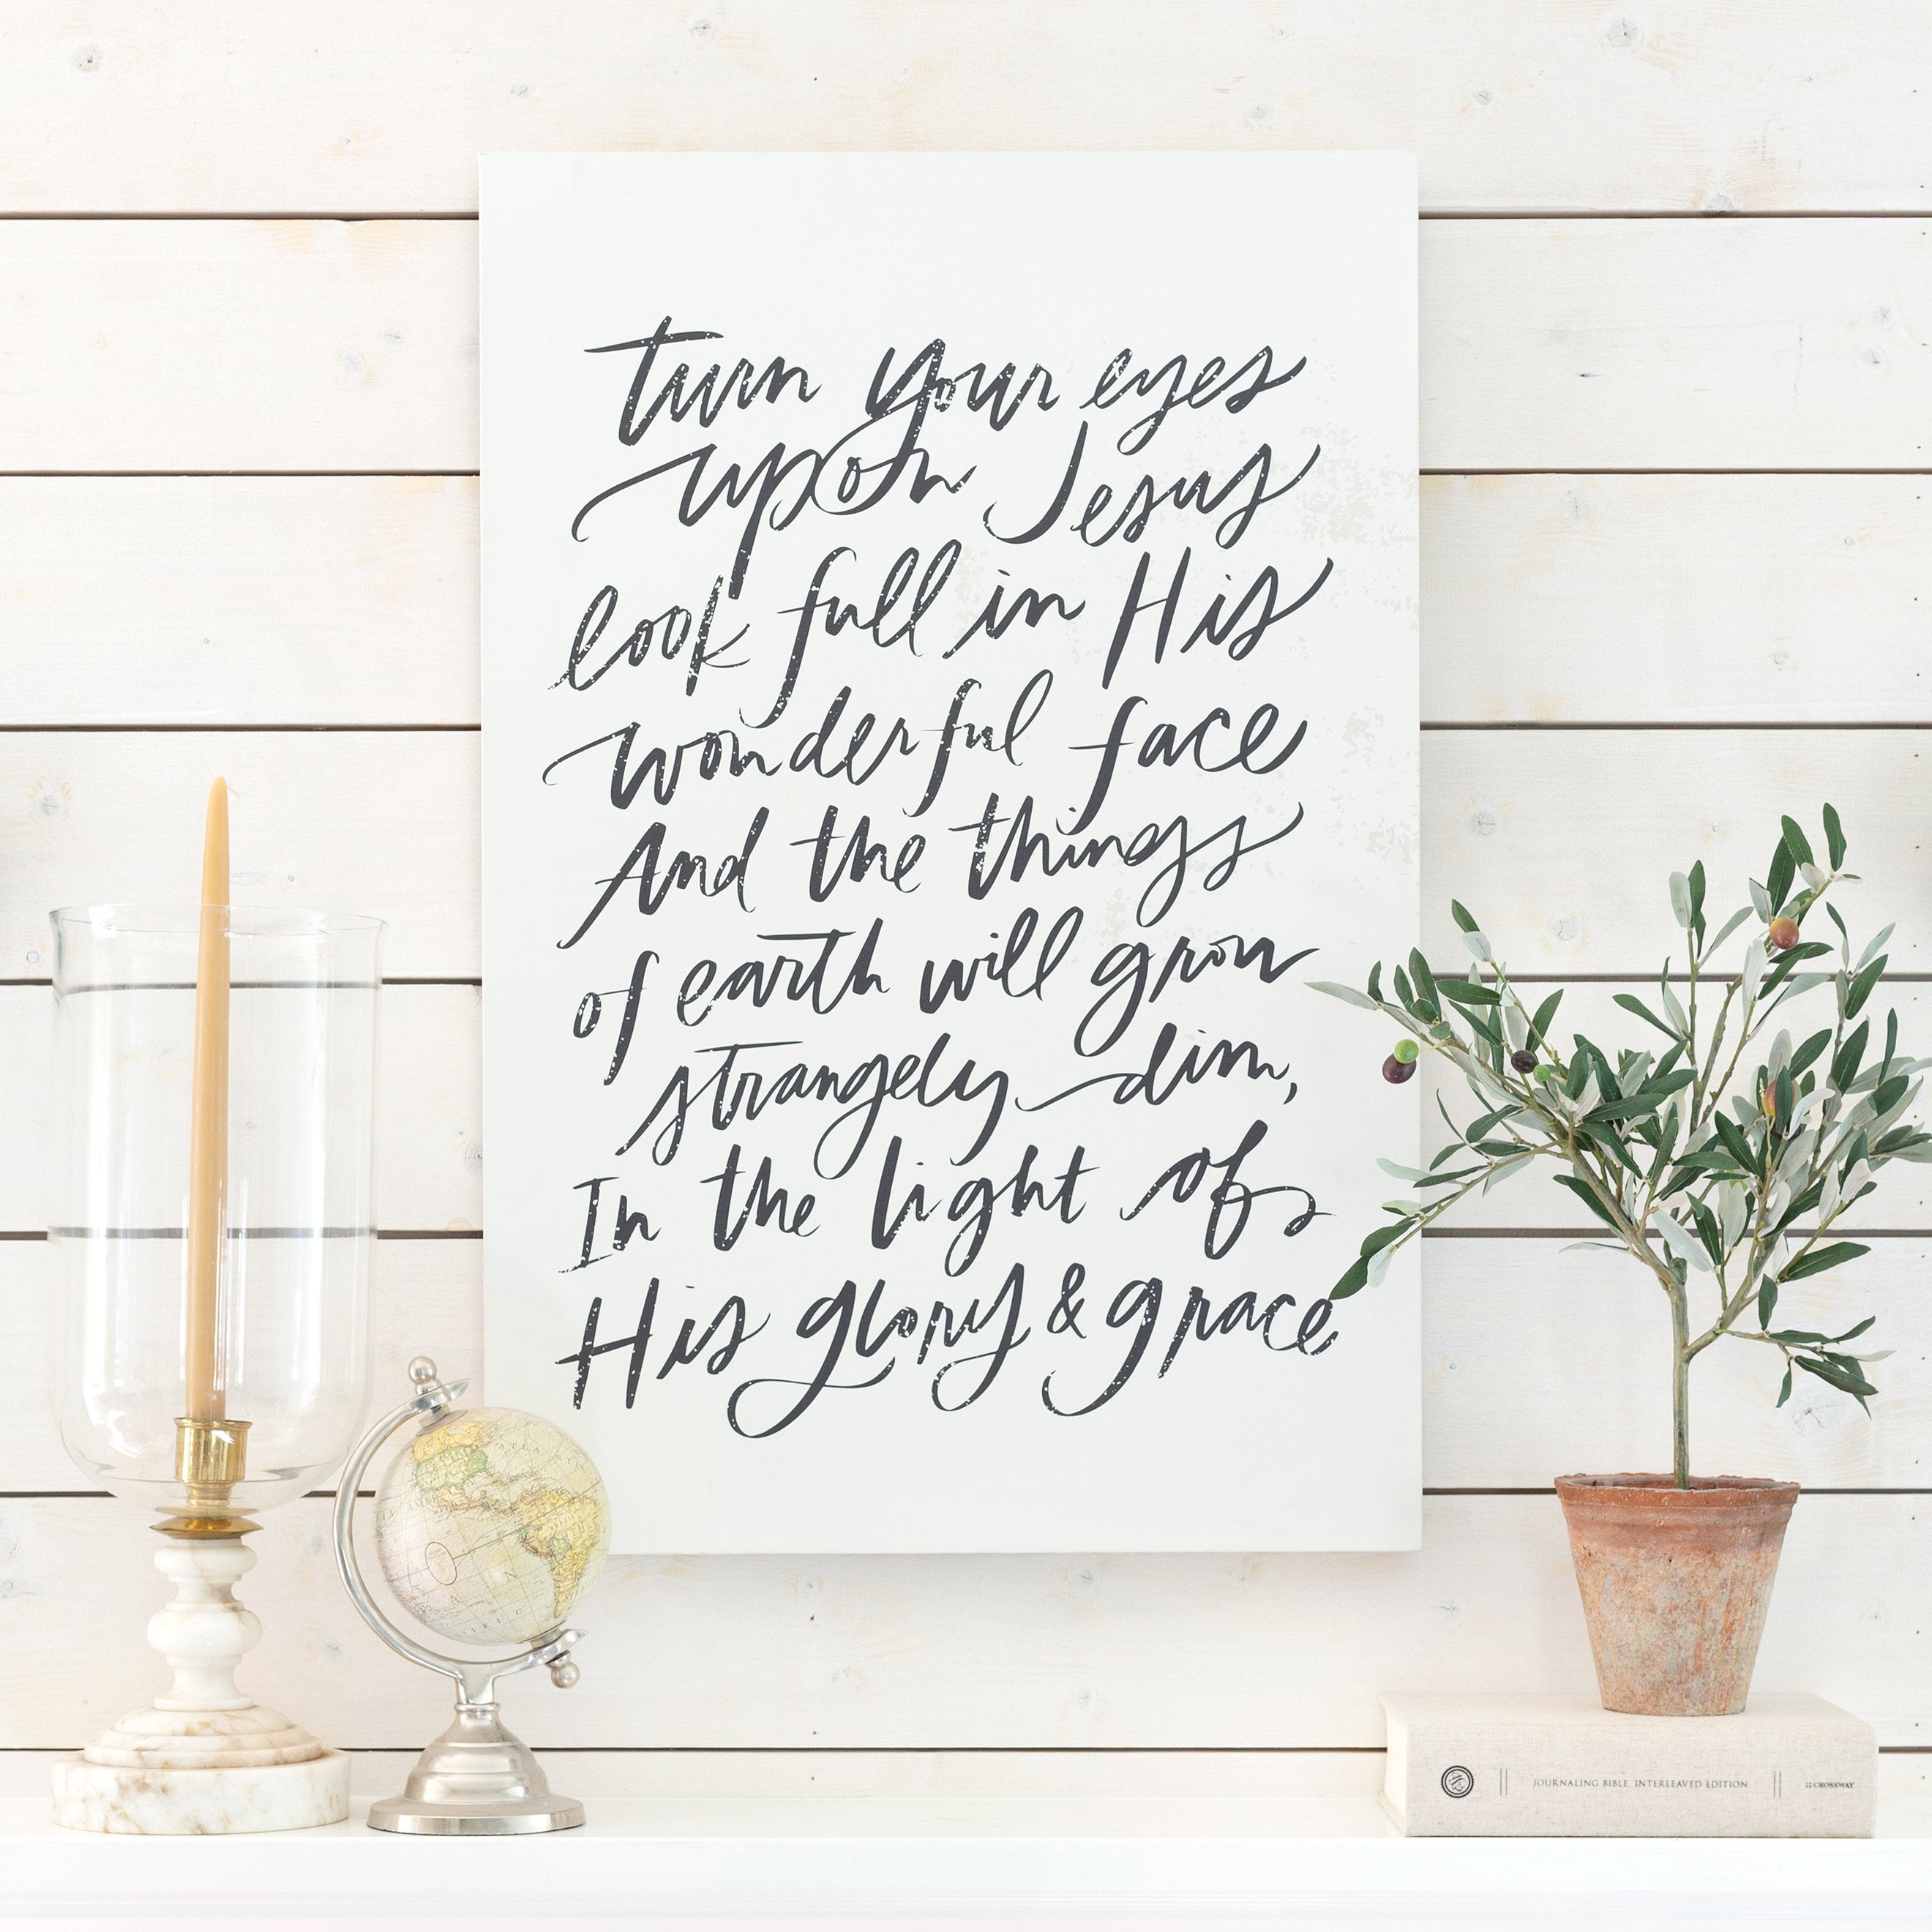 turn your eyes
upon Jesus
look full in His
wonderful face
And the things
of earth will grow
strangely dim,
In the light of
His glory & grace
JOURNALING BIBLE, INTERLEAVED EDITION
CROSSWAY